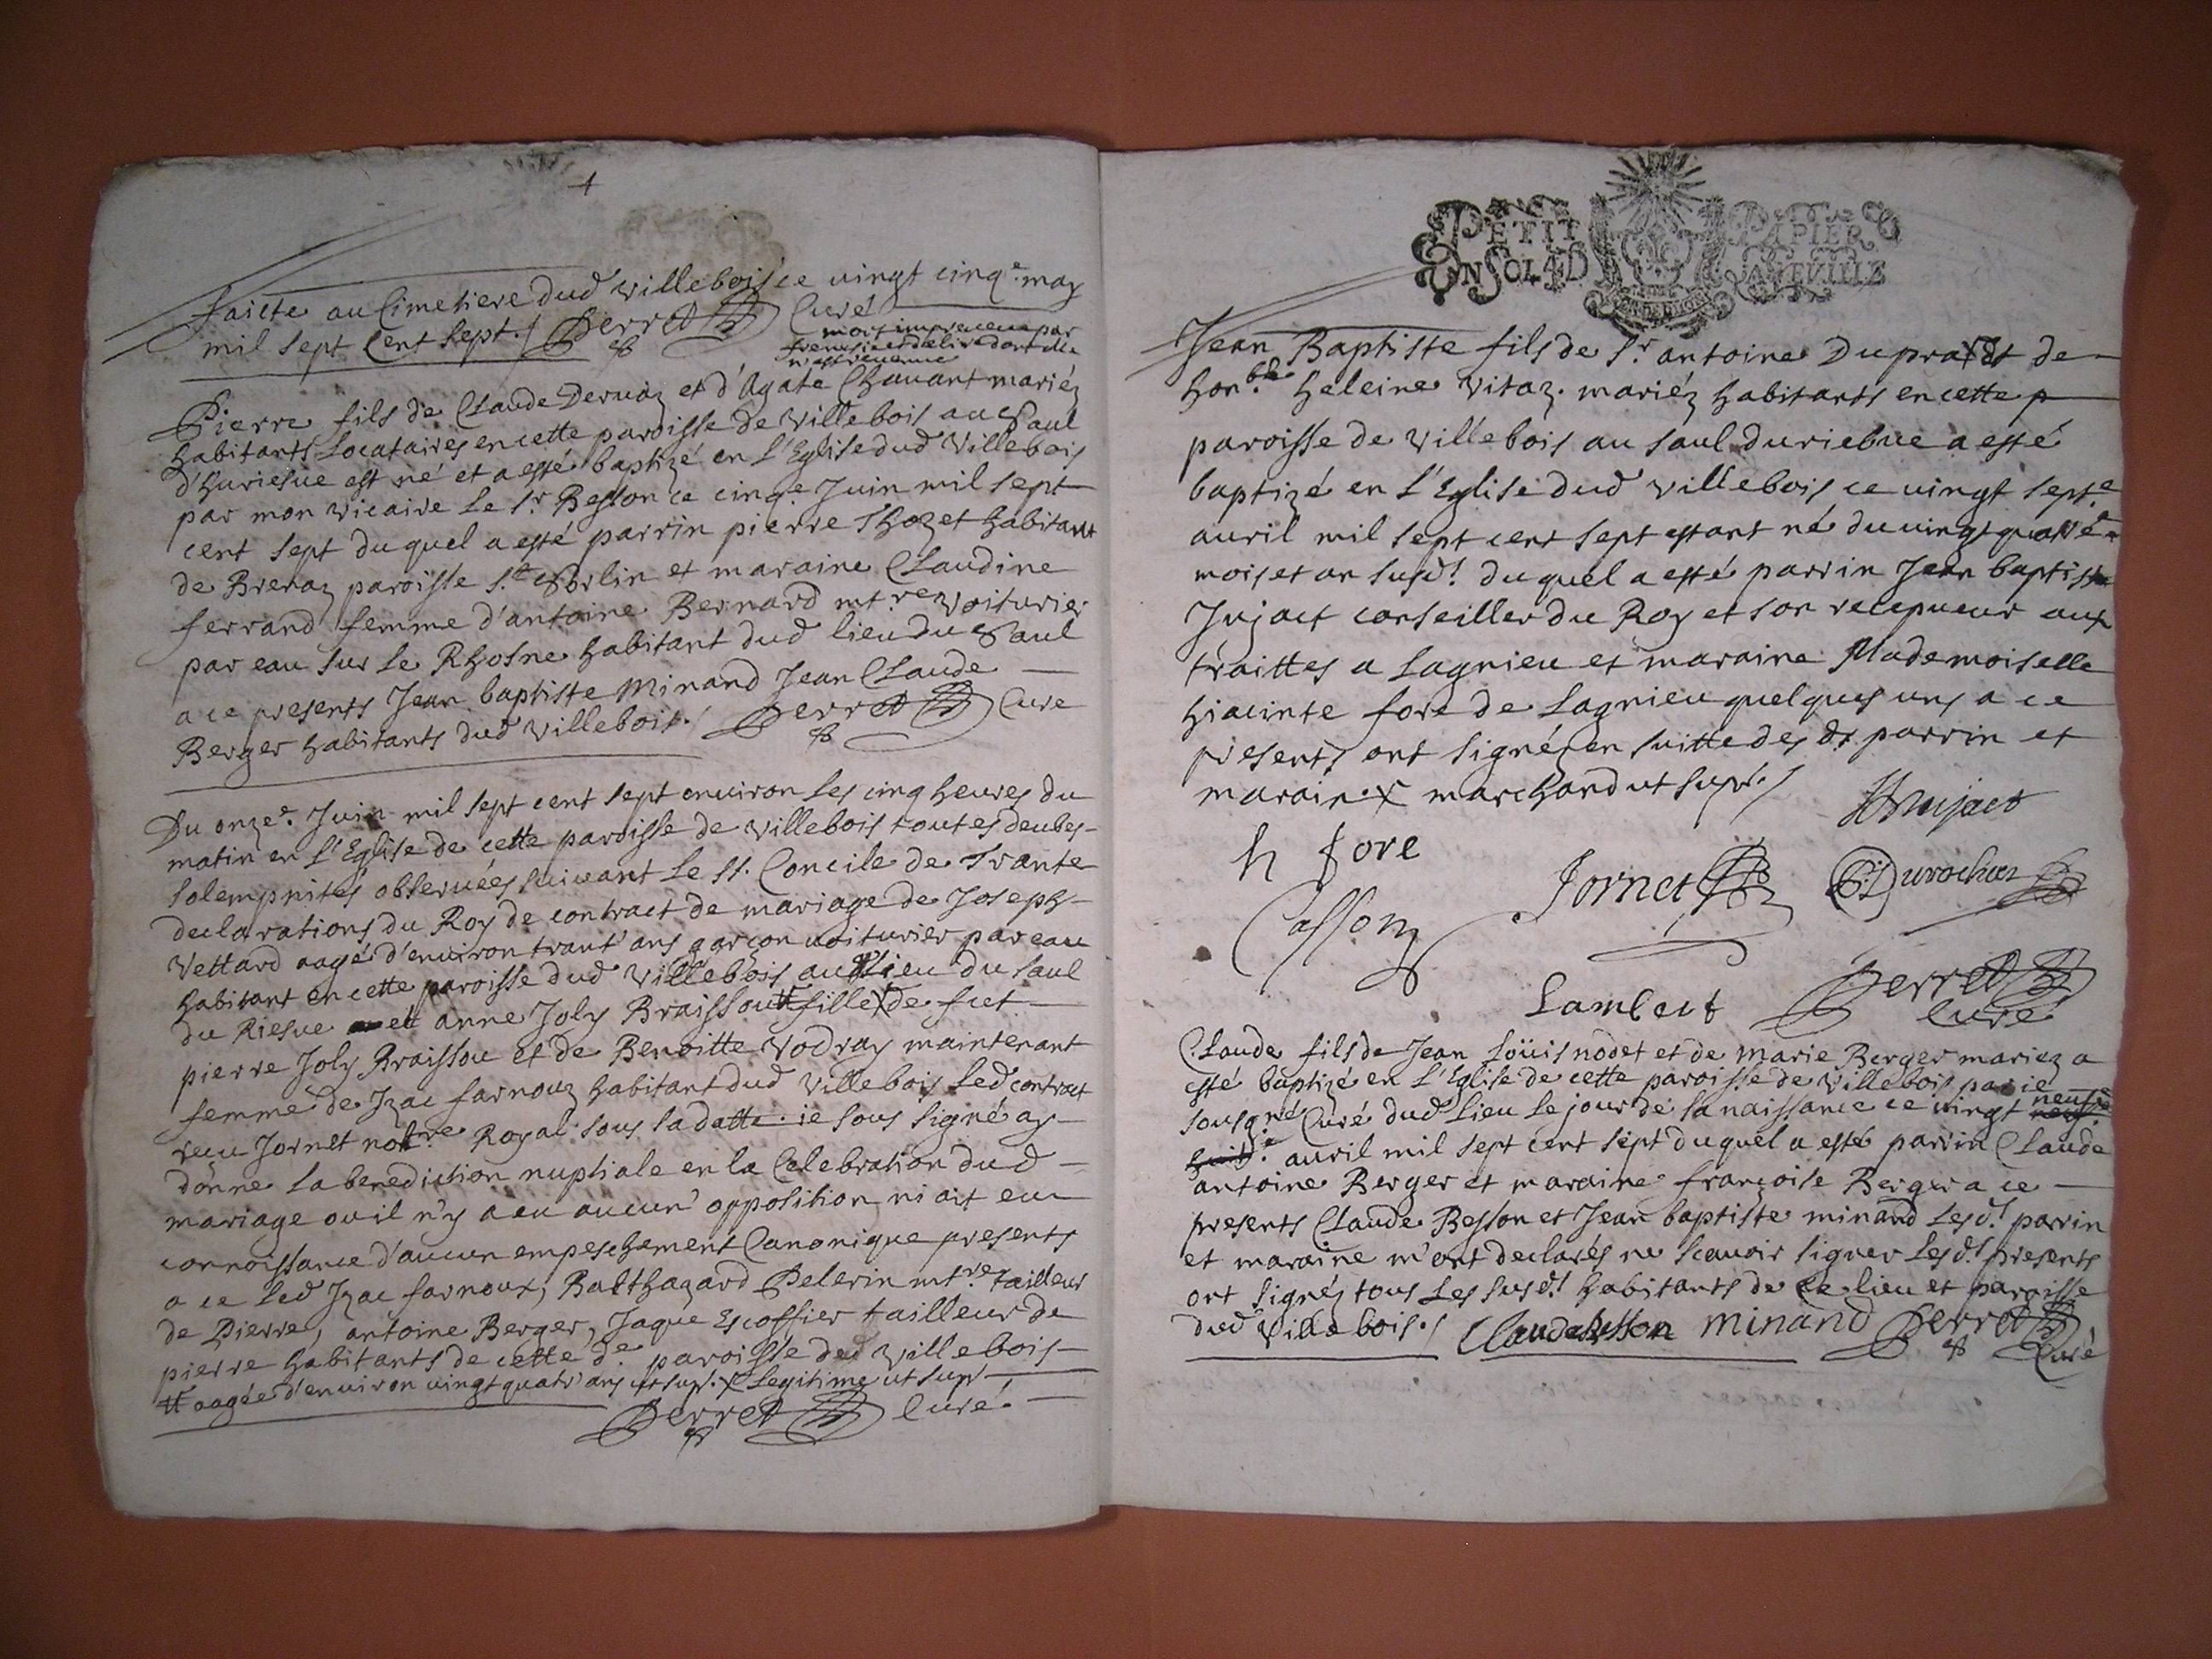 4
faicte au Cimetiere dud villebois ce vingt cinq.e may
mil sept Cent sept./ Perret Curé
mort impreveue par
frenesie et delire dont elle
n'est revenue
Pierre fils de Claude Dervaz et d'Agate Chavant mariéz
habitants Locataires en cette paroisse de Villebois au Saul
d'huriesue est né et a esté baptizé en L'Eglise dud Villebois
par mon vicaire Le Sr Besson ce cinq.e Juin mil sept
cent sept duquel a esté parrin pierre Thozet habitant
de Brenaz paroisse St Sorlin et maraine Claudine
ferrand femme d'antoine Bernard mtre voiturier
par eau sur Le Rhosne habitant dud lieu du Saul
a ce presents Jean baptiste Minand Jean Claude
Berger habitants dud Villebois./ Perret Curé
Du onze.e Juin mil sept cent sept environ les cinq heures du
matin en L'Eglise de cette paroisse de villebois toutes deubes
solempnités observées suivant Le St. Concile de Trante
declarations du Roy de contract de mariage de Joseph
Vettard aagé d'environ trant' ans garçon voiturier par eau
habitant en cette paroisse dud Villebois au lieu du Saul
du Riesue et anne Joly Braissou # fille x de fut
pierre Joly Braissou et de Benoitte Vodray maintenant
femme de Izac farnoux habitant dud Villebois Led contract
receu Jornet notre Royal sous sa datte ie sous signé ay
donne La benediction nuptiale en la Celebration dud
mariage ou il n'y a eu aucun' opposition ni ait eu
connoissance d'aucun empeschement Canonique presents
a ce Led Izac farnoux, Balthazard Pelerin mtre tailleur
de Pierre, antoine Berger, Jaque Escoffier tailleur de
pierre habitants de cette de. paroisse de Villebois
# aagée d'environ vingt quatr' ans ut sup. x Legitime ut sup
Perret Curé.
PETIT PAPIER
UN SOL 4 D LA FEUILLE
Jean Baptiste fils de Sr antoine Dupraz et de
hon.ble heleine Vitaz. mariéz habitants en cette p
paroisse de Villebois au saul duriesue a esté
baptizé en L'Eglise dud Villebois ce vingt sept.e
avril mil sept cent sept estant né du vingt quatre
mois et an susd.t duquel a esté parrin Jean baptiste
Jujact conseiller du Roy et son recepveur aux
traittes a Lagnieu et maraine Mademoiselle
hiacinte fore de Lagnieu quelques uns a ce
presents ont signéz en suitte des ds parrin et
maraine x marchand ut sup./
Jujact
h fore
Jornet
Durochat
Casson
Lambert
Perret
Curé
Claude fils de Jean Loüis nodet et de Marie Berger mariez a
esté baptizé en L'Eglise de cette paroisse de Villebois par ie
sousgné Curé dud Lieu Le jour de sa naissance ce vingt neuf neufe
huit.e avril mil sept cent sept duquel a esté parrin Claude
antoine Berger et maraine françoise Berger a ce
presents Claude Besson et Jean baptiste minand Lesd.t parrin
et maraine m'ont declarés ne scavoir signer Lesd.t presents
ont signéz tous Les susd.t habitants de ce lieu et paroisse
dud Villebois./ Claude besson minand Perret
Curé